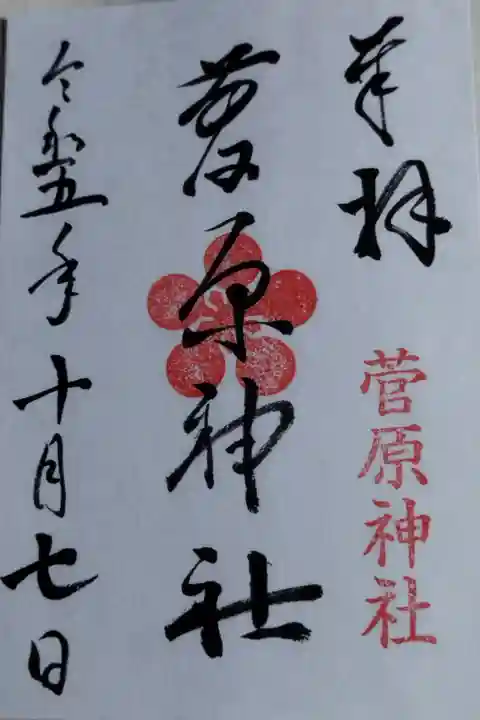 奉拝
菅原神社
原神社
令和五年十月七日